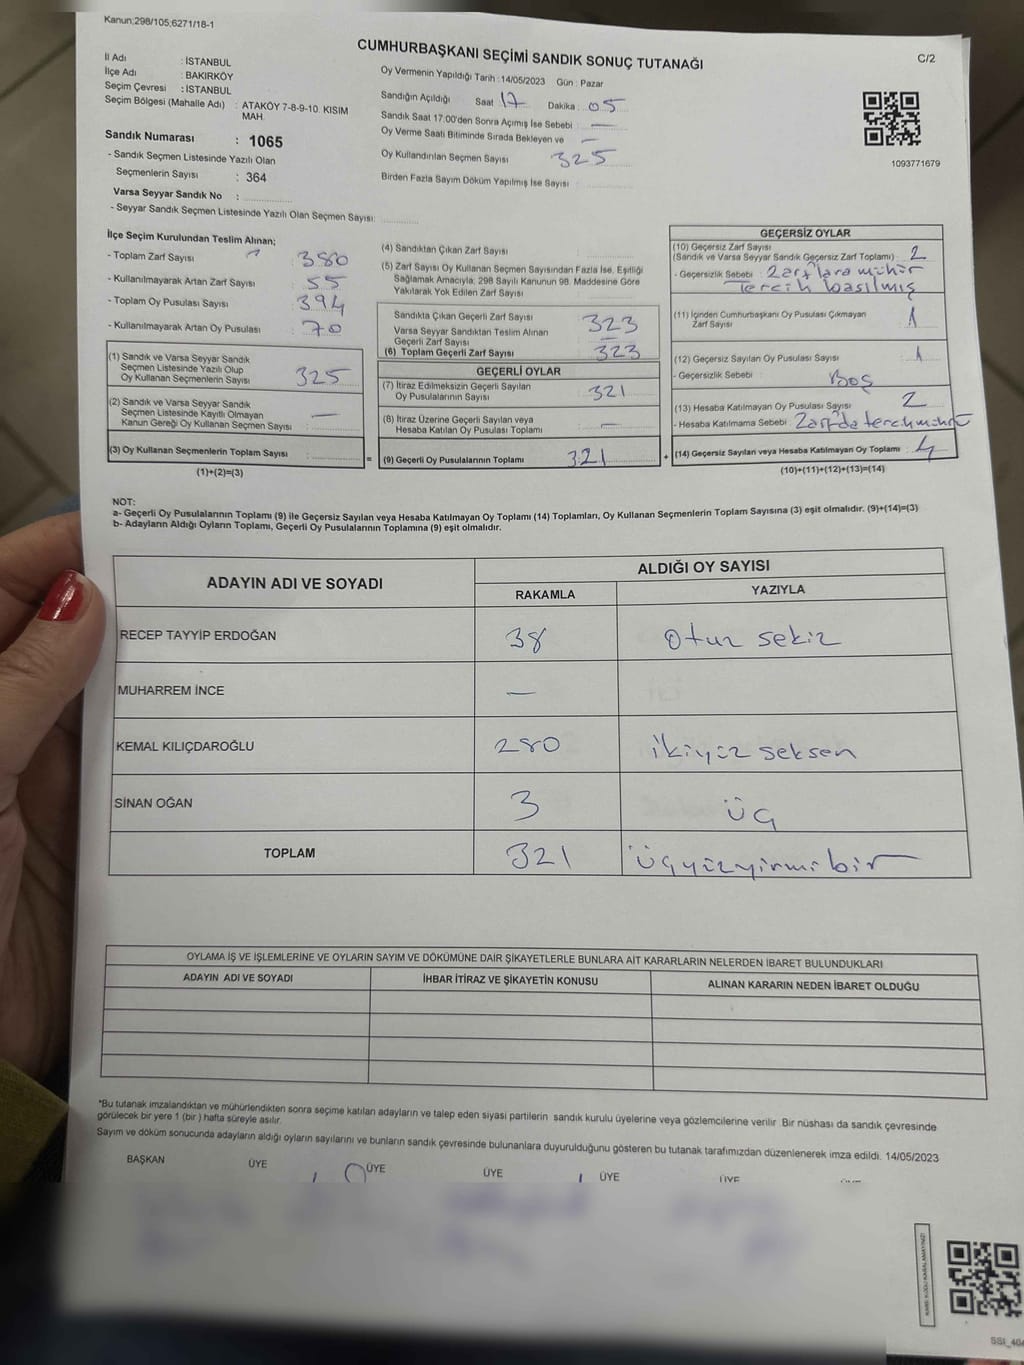 Kanun;298/105;6271/18-1
CUMHURBAŞKANI SEÇİMİ SANDIK SONUÇ TUTANAĞI
C/2
İl Adı : İSTANBUL
İlçe Adı : BAKIRKÖY
Seçim Çevresi : İSTANBUL
Seçim Bölgesi (Mahalle Adı) : ATAKÖY 7-8-9-10. KISIM MAH.
Sandık Numarası : 1065
- Sandık Seçmen Listesinde Yazılı Olan
Seçmenlerin Sayısı : 364
Varsa Seyyar Sandık No :
- Seyyar Sandık Seçmen Listesinde Yazılı Olan Seçmen Sayısı:
Oy Vermenin Yapıldığı Tarih : 14/05/2023 Gün : Pazar
Sandığın Açıldığı Saat 17 Dakika : 05
Sandık Saat 17:00'den Sonra Açımış İse Sebebi : —
Oy Verme Saati Bitiminde Sırada Bekleyen ve —
Oy Kullandırılan Seçmen Sayısı 325
Birden Fazla Sayım Döküm Yapılmış İse Sayısı :
1093771679
İlçe Seçim Kurulundan Teslim Alınan;
- Toplam Zarf Sayısı : 380
- Kullanılmayarak Artan Zarf Sayısı : 55
- Toplam Oy Pusulası Sayısı : 394
- Kullanılmayarak Artan Oy Pusulası : 70
(1) Sandık ve Varsa Seyyar Sandık
Seçmen Listesinde Yazılı Olup
Oy Kullanan Seçmenlerin Sayısı : 325
(2) Sandık ve Varsa Seyyar Sandık
Seçmen Listesinde Kayıtlı Olmayan
Kanun Gereği Oy Kullanan Seçmen Sayısı : —
(3) Oy Kullanan Seçmenlerin Toplam Sayısı :
(1)+(2)=(3)
=
(4) Sandıktan Çıkan Zarf Sayısı :
(5) Zarf Sayısı Oy Kullanan Seçmen Sayısından Fazla İse, Eşitliği
Sağlamak Amacıyla, 298 Sayılı Kanunun 98. Maddesine Göre
Yakılarak Yok Edilen Zarf Sayısı :
Sandıkta Çıkan Geçerli Zarf Sayısı : 323
Varsa Seyyar Sandıktan Teslim Alınan
Geçerli Zarf Sayısı : —
(6) Toplam Geçerli Zarf Sayısı : 323
GEÇERLİ OYLAR
(7) İtiraz Edilmeksizin Geçerli Sayılan
Oy Pusulalarının Sayısı : 321
(8) İtiraz Üzerine Geçerli Sayılan veya
Hesaba Katılan Oy Pusulası Toplamı : —
(9) Geçerli Oy Pusulalarının Toplamı : 321
+
GEÇERSİZ OYLAR
(10) Geçersiz Zarf Sayısı
(Sandık ve Varsa Seyyar Sandık Geçersiz Zarf Toplamı) : 2
- Geçersizlik Sebebi : Zarflara mühür
Tercih basılmış
(11) İçinden Cumhurbaşkanı Oy Pusulası Çıkmayan
Zarf Sayısı : 1
(12) Geçersiz Sayılan Oy Pusulası Sayısı : 1
- Geçersizlik Sebebi : Boş
(13) Hesaba Katılmayan Oy Pusulası Sayısı : 2
- Hesaba Katılmama Sebebi : Zarfda
(14) Geçersiz Sayılan veya Hesaba Katılmayan Oy Toplamı : 4
(10)+(11)+(12)+(13)=(14)
NOT:
a- Geçerli Oy Pusulalarının Toplamı (9) ile Geçersiz Sayılan veya Hesaba Katılmayan Oy Toplamı (14) Toplamları, Oy Kullanan Seçmenlerin Toplam Sayısına (3) eşit olmalıdır. (9)+(14)=(3)
b- Adayların Aldığı Oyların Toplamı, Geçerli Oy Pusulalarının Toplamına (9) eşit olmalıdır.
ADAYIN ADI VE SOYADI
ALDIĞI OY SAYISI
RAKAMLA YAZIYLA
RECEP TAYYİP ERDOĞAN 38 otuz sekiz
MUHARREM İNCE —
KEMAL KILIÇDAROĞLU 280 ikiyüz seksen
SİNAN OĞAN 3 üç
TOPLAM 321 üçyüzyirmibir
OYLAMA İŞ VE İŞLEMLERİNE VE OYLARIN SAYIM VE DÖKÜMÜNE DAİR ŞİKAYETLERLE BUNLARA AİT KARARLARIN NELERDEN İBARET BULUNDUKLARI
ADAYIN ADI VE SOYADI İHBAR İTİRAZ VE ŞİKAYETİN KONUSU ALINAN KARARIN NEDEN İBARET OLDUĞU
*Bu tutanak imzalandıktan ve mühürlendikten sonra seçime katılan adayların ve talep eden siyasi partilerin sandık kurulu üyelerine veya gözlemcilerine verilir. Bir nüshası da sandık çevresinde
görülecek bir yere 1 (bir ) hafta süreyle asılır.
Sayım ve döküm sonucunda adayların aldığı oyların sayılarını ve bunların sandık çevresinde bulunanlara duyurulduğunu gösteren bu tutanak tarafımızdan düzenlenerek imza edildi. 14/05/2023
BAŞKAN ÜYE ÜYE ÜYE ÜYE ÜYE